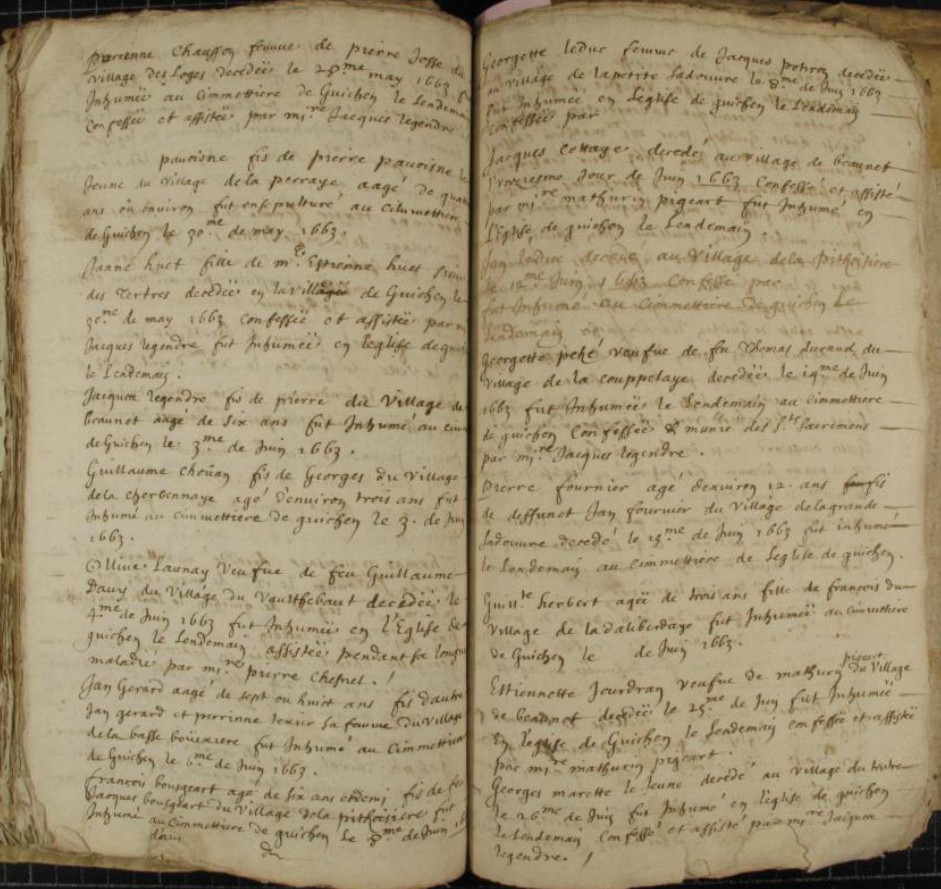 perrienne Chausson femme de pierre Josse du
village des Loges decedée le 28.me may 1663
Inhumée au Cimmettiere de Guichen le Lendemain
Confessée et assistée par mi.re Jacques legendre
pavoisne fis de pierre pavoisne le
Jeune du village de la perraye aagé de quatre
ans ou environ fut ensepulturé au Cimmettiere
de Guichen le 30.me de may 1663.
Janne huet fille de m.e Estienne huet
des Tertres decedée en la village de Guichen le
30.me de may 1663 Confessée et assistée par
Jacques legendre fut Inhumée en leglise de
le Lendemain.
Jacques legendre fis de pierre du Village de
beaunot aagé de six ans fut Inhumé au
de Guichen le 3.me de Juin 1663.
Guillaume Choüan fis de Georges du village
de la Cherbonnaye agé denuiron trois ans fut
Inhumé au Cimmettiere de guichen le 3. de Juin
1663.
Ollive Launay Veufue de feu Guillaume
Dauy du Village du Vautthebaut decedée le
4.me de Juin 1663 fut Inhumée en l'Eglise de
guichen le Lendemain assistée pendant sa longue
maladie par mi.re pierre Chesnel.
Jan Gerard aagé de sept ou huict ans fis d'autre
Jan gerard et perrinne sa femme du village
de la basse boüexiere fut Inhumé au Cimmettiere
de Guichen le 6.me de Juin 1663.
françois bousgeart agé de six ans et demi fis de feu
Jacques bousgeart du Village de la prithoisiere fut
Inhumé au Cimmettiere de guichen le 8.me de Juin
Georgette leduc femme de Jacques potiron decedée
au village de la petite Ladouvre le 8.me de Juin 1663
fut Inhumée en Leglise de guichen le Lendemain
Confessée par
Jacques Cottaye decedé au village de beaunot
Jour de Juin 1663 Confessé et assisté
par mi.re mathurin pigeart fut Inhumé en
l'Eglise de guichen le Lendemain.
Jan leduc decedé au village de la prithoisiere
le 12.me Juin 1663 Confessé par
fut Inhumé au Cimmettiere de guichen Le
Lendemain
Georgette peké veufue de fu Thomas durand du
Village de la Couppetaye decedée le 14.me de Juin
1663 fut Inhumée le Lendemain au Cimmettiere
de guichen Confessée & munie des S.ts Sacremens
par mi.re Jacques legendre.
pierre fournier agé denviron 12. ans fis
de deffunct Jan fournier du village de la grande
Ladouvre decedé le 15.me de Juin 1663 fut inhumé
le Lendemain au Cimmettiere de Leglise de guichen.
Guill.te herbert agée de trois ans fille de françois du
village de la daliberdaye fut Inhumée au Cimmettiere
de Guichen le de Juin 1663.
Estiennette Jourdran veufue de mathurin pigeart du Village
de beaunot decedée le 25.me de Juin fut Inhumée
En l'eglise de Guichen le Lendemain confessée et assistée
par mi.re mathurin pigeart.
Georges marotte le Jeune decedé au village du tertre
le 26.me de Juin fut Inhumé en l'eglise de guichen
le Lendemain Confessé et assisté par mi.re Jacques
legendre.